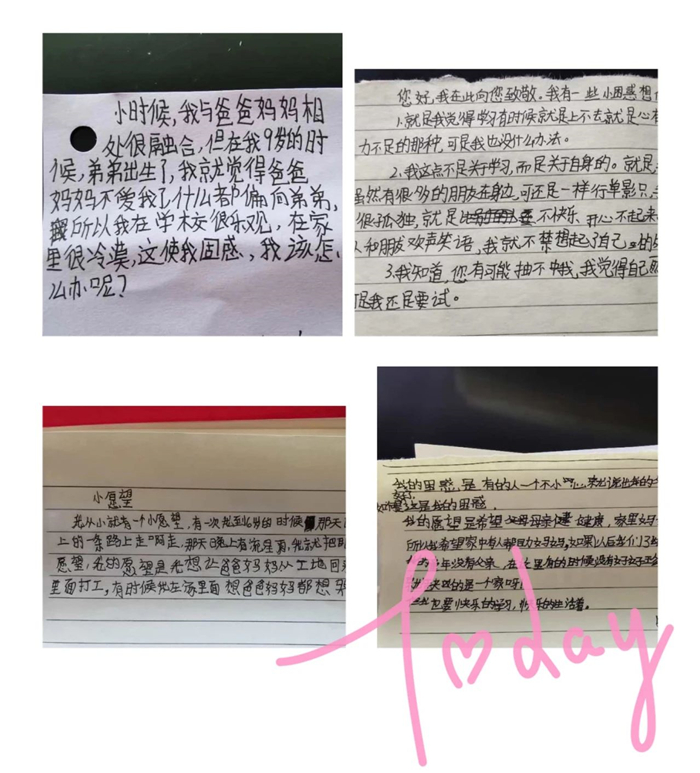 小时候,我与爸爸妈妈相
处很融合,但在我9岁的时
候,弟弟出生了,我就觉得爸爸
妈妈不爱我了,什么都偏向弟弟,
所以我在学校很乐观,在家
里很冷漠,这使我困惑,我该怎
么办呢?
您好,我在此向您致敬。我有一些小困惑想
1.就是我觉得学习有时候就是上不去就是心有
力不足的那种,可是我也没什么办法。
2.我这点不是关于学习,而是关于自身的。就是
虽然有很多的朋友在身边,可还是一样行单影只,
很孤独,就是 不快乐 开心不起来
人和朋友欢声笑语,我就不禁想起了自己
3.我知道,您有可能抽不中我,我觉得自己
但我还是要试。
小愿望
我从小就有一个小愿望,有一次我五六岁的时候 那天
上的一条路上走啊走,那天晚上有流星,我就把
愿望,我的愿望是我想让爸爸妈妈从工地回
里面打工,有时候我在家里面想爸爸妈妈都想
我的困惑,是有的人一个不小心
这是我的困惑。
我的愿望是希望 母亲 健康,家里
所以我希望家中有人帮助
年没有 在 里有的时候没有
的是一个家吗
我也要快乐的学习,快乐的生活着。
Today